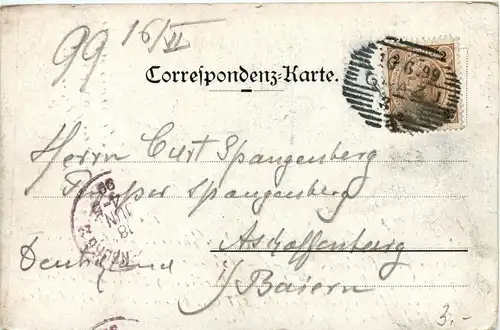 99 16/VI
16.6.99
Correspondenz-Karte.
Herrn Curt Spangenberg
Spangenberg
Aschaffenburg
Deutschland
i/Baiern
18 JUN 99
3.-